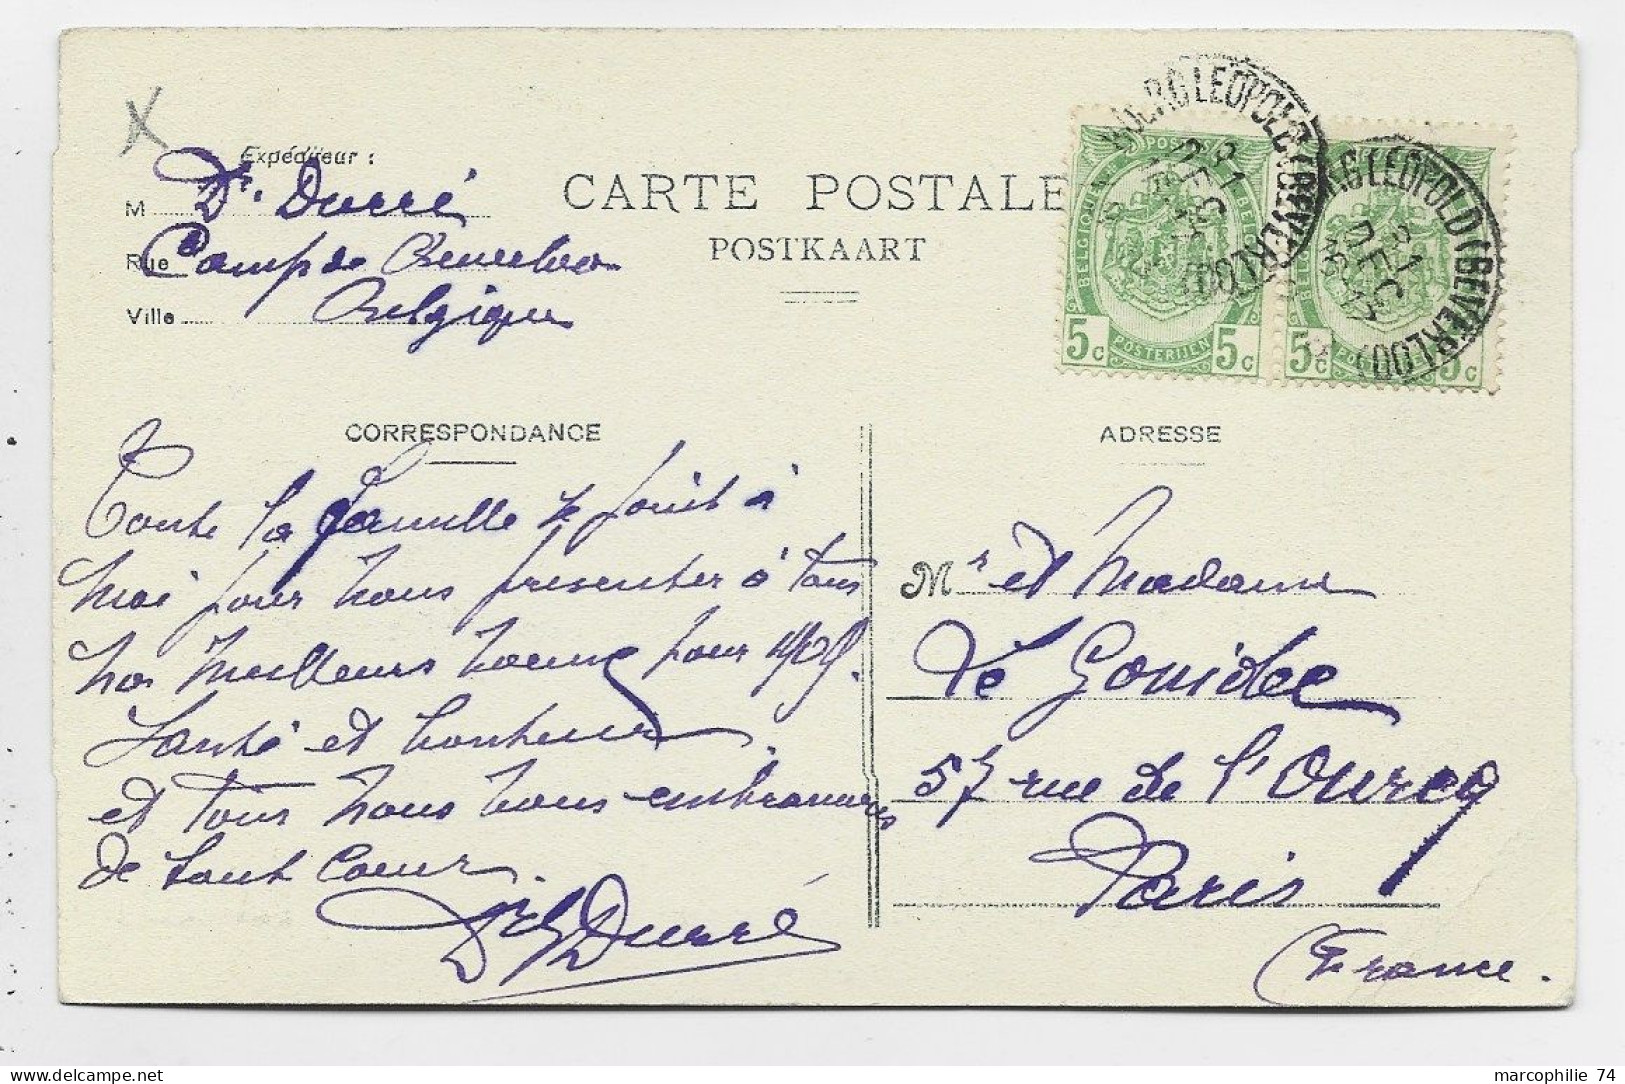 X
Expéditeur :
M Dr. Durré
Rue Camp de Beverloo
Ville Belgique
CARTE POSTALE
POSTKAART
BOURG LEOPOLD (BEVERLOO)
31 DEC
BOURG LEOPOLD (BEVERLOO)
31 DEC
BELGIQUE POSTES BELGIË
5c POSTERIJEN 5c
5c 5c
CORRESPONDANCE
Toute la famille se joint à
moi pour vous présenter à tous
nos meilleurs voeux pour 1909.
Santé et bonheur
et tous nous vous embrassons
de tout coeur.
Dr Durré
ADRESSE
Mr et Madame
Le Gouidec
57 rue de l'Ourcq
Paris
(France.
marcophilie 74